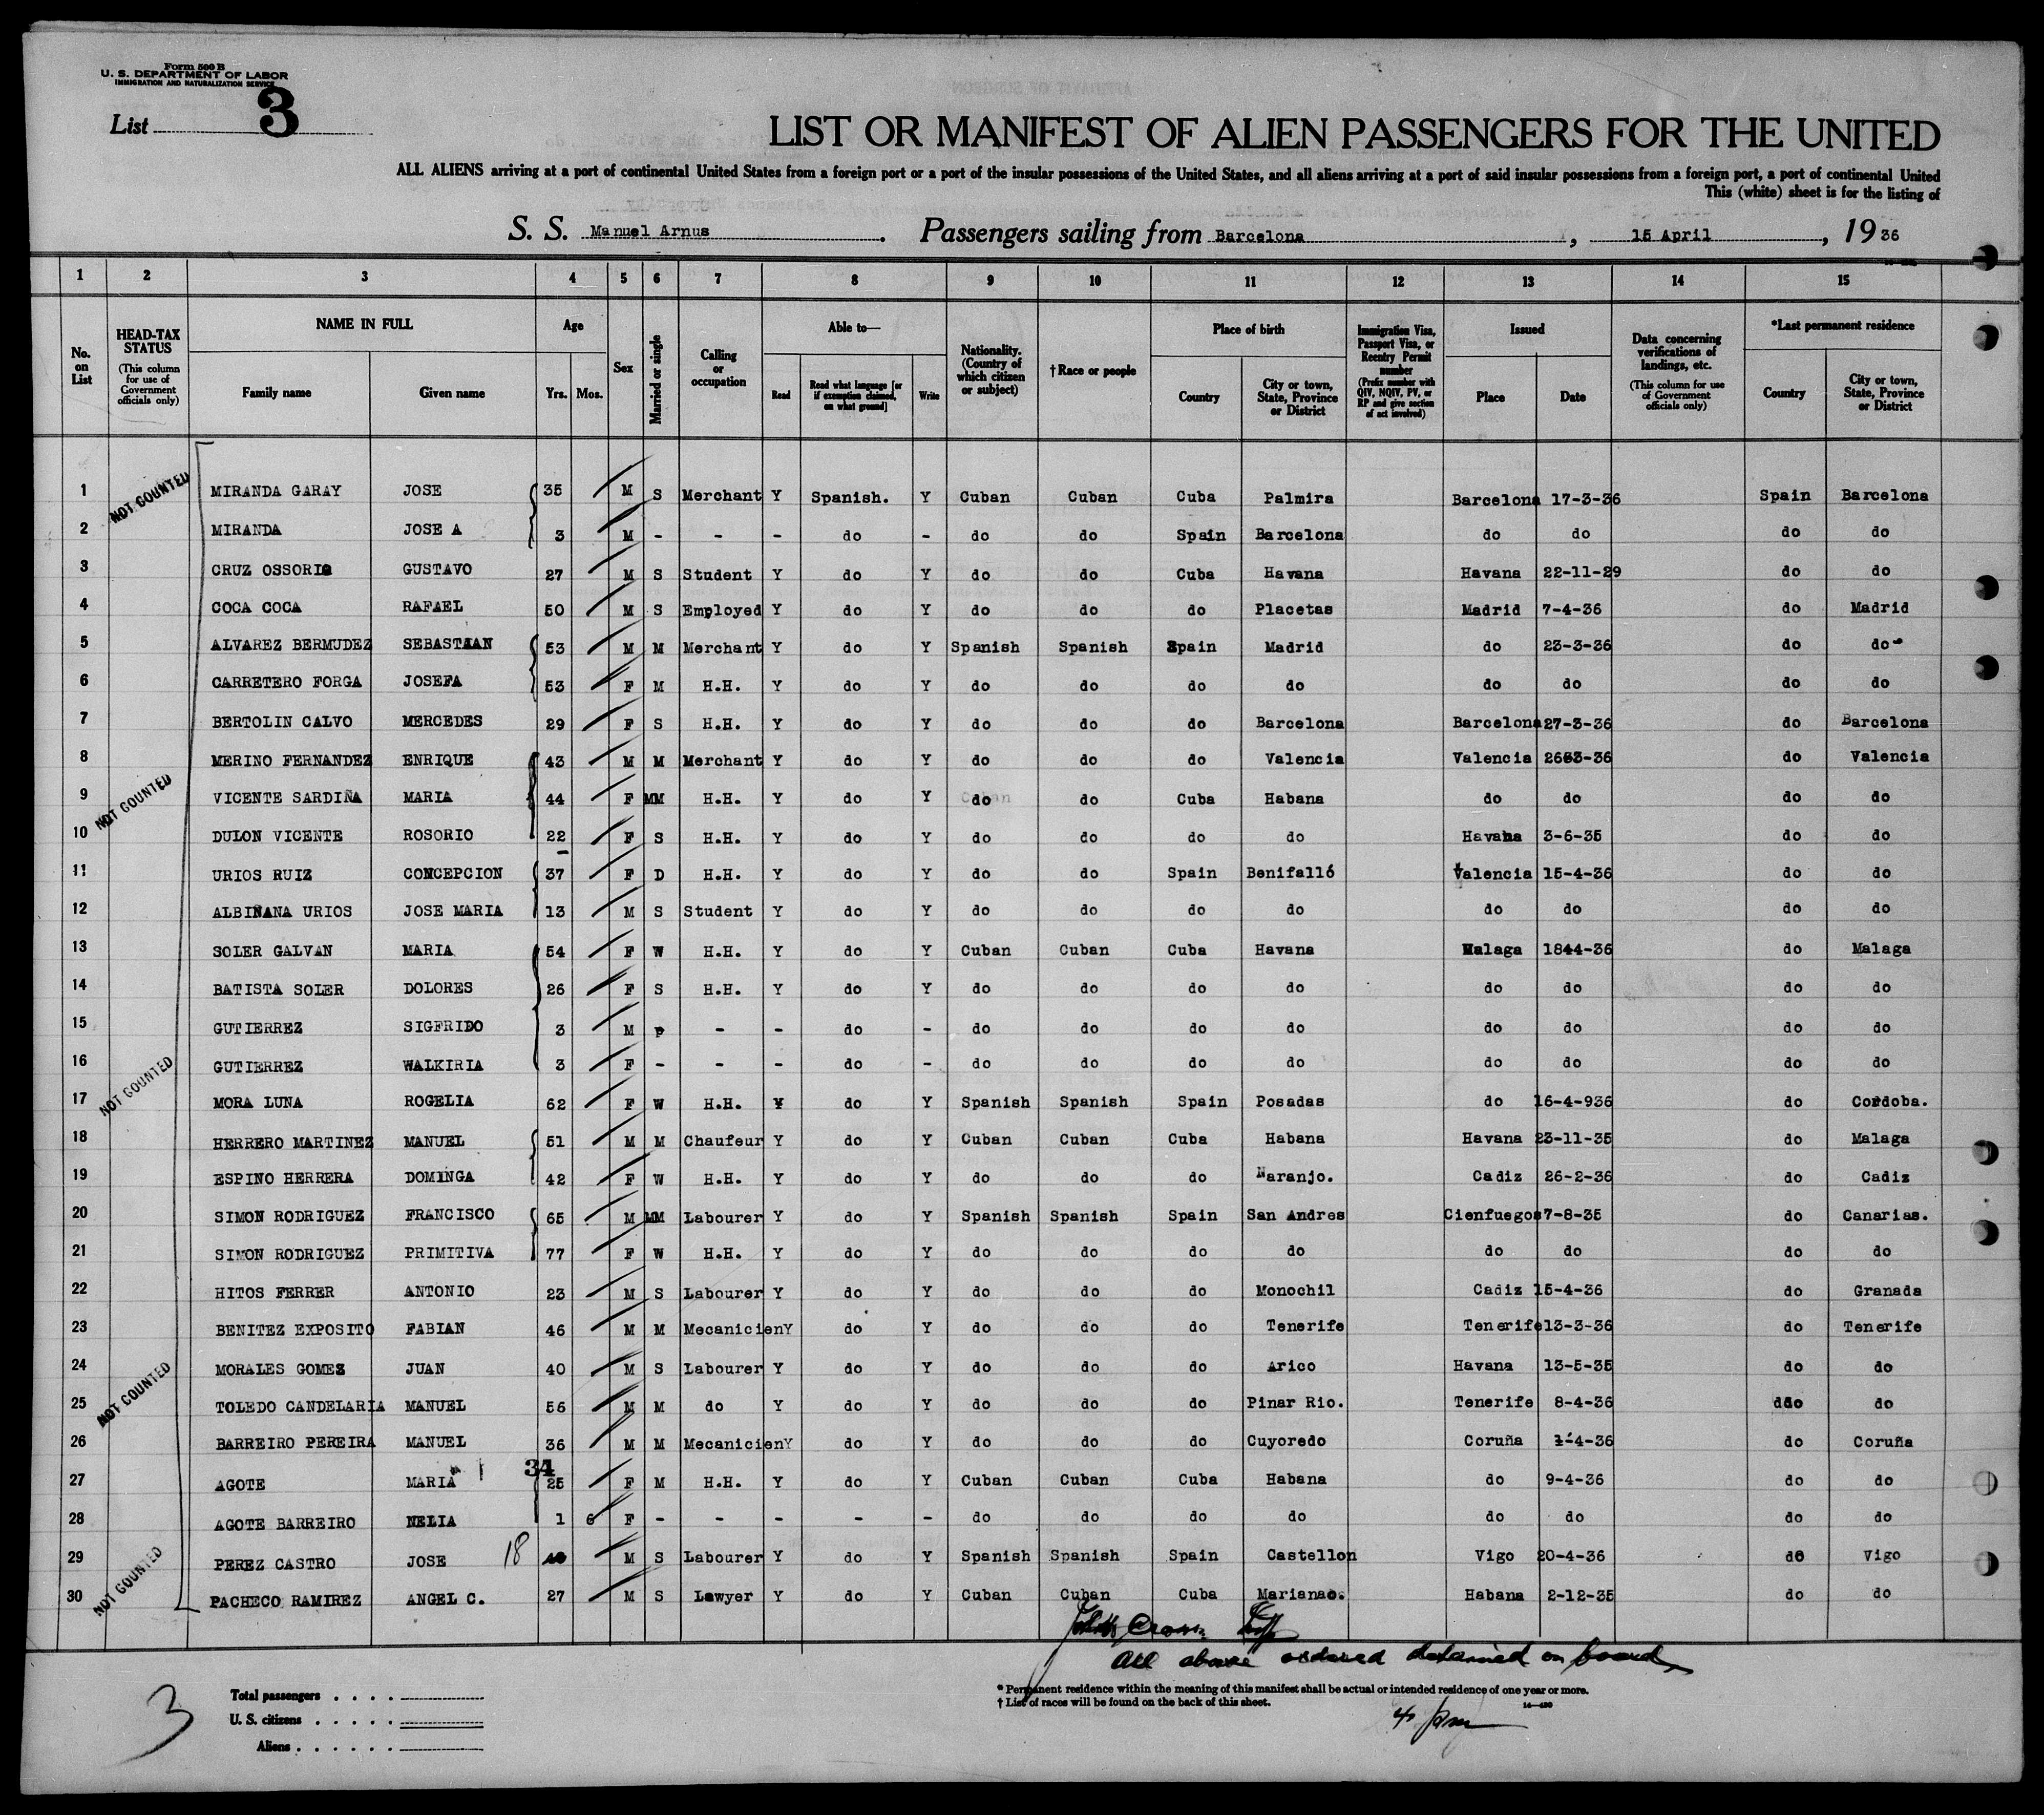 Form 500 B
U. S. DEPARTMENT OF LABOR
IMMIGRATION AND NATURALIZATION SERVICE
List 3
LIST OR MANIFEST OF ALIEN PASSENGERS FOR THE UNITED
ALL ALIENS arriving at a port of continental United States from a foreign port or a port of the insular possessions of the United States, and all aliens arriving at a port of said insular possessions from a foreign port, a port of continental United
This (white) sheet is for the listing of
S. S. Manuel Arnus. Passengers sailing from Barcelona, 15 April, 1936
1 2 3 4 5 6 7 8 9 10 11 12 13 14 15
No. on List
HEAD-TAX STATUS (This column for use of Government officials only)
NAME IN FULL Family name Given name
Age Yrs. Mos.
Sex
Married or single
Calling or occupation
Able to— Read Read what language [or if exemption claimed, on what ground] Write
Nationality. (Country of which citizen or subject)
†Race or people
Place of birth Country City or town, State, Province or District
Immigration Visa, Passport Visa, or Reentry Permit number (Prefix number with QIV, NQIV, PV, or RP and give section of act involved)
Issued Place Date
Data concerning verifications of landings, etc. (This column for use of Government officials only)
*Last permanent residence Country City or town, State, Province or District
1 NOT COUNTED MIRANDA GARAY JOSE 35 M S Merchant Y Spanish. Y Cuban Cuban Cuba Palmira Barcelona 17-3-36 Spain Barcelona
2 MIRANDA JOSE A 3 M - - - do - do do Spain Barcelona do do do do
3 CRUZ OSSORIO GUSTAVO 27 M S Student Y do Y do do Cuba Havana Havana 22-11-29 do do
4 COCA COCA RAFAEL 50 M S Employed Y do Y do do do Placetas Madrid 7-4-36 do Madrid
5 ALVAREZ BERMUDEZ SEBASTIAN 53 M M Merchant Y do Y Spanish Spanish Spain Madrid do 23-3-36 do do
6 CARRETERO FORGA JOSEFA 53 F M H.H. Y do Y do do do do do do do do
7 BERTOLIN CALVO MERCEDES 29 F S H.H. Y do Y do do do Barcelona Barcelona 27-3-36 do Barcelona
8 MERINO FERNANDEZ ENRIQUE 43 M M Merchant Y do Y do do do Valencia Valencia 26-3-36 do Valencia
9 NOT COUNTED VICENTE SARDIÑA MARIA 44 F M H.H. Y do Y do do Cuba Habana do do do do
10 DULON VICENTE ROSORIO 22 F S H.H. Y do Y do do do do Havana 3-6-35 do do
11 URIOS RUIZ CONCEPCION 37 F D H.H. Y do Y do do Spain Benifalló Valencia 15-4-36 do do
12 ALBIÑANA URIOS JOSE MARIA 13 M S Student Y do Y do do do do do do do do
13 SOLER GALVAN MARIA 54 F W H.H. Y do Y Cuban Cuban Cuba Havana Malaga 18-4-36 do Malaga
14 BATISTA SOLER DOLORES 26 F S H.H. Y do Y do do do do do do do do
15 GUTIERREZ SIGFRIDO 3 M - - do - do do do do do do do do
16 GUTIERREZ WALKIRIA 3 F - - - do - do do do do do do do do
17 NOT COUNTED MORA LUNA ROGELIA 62 F W H.H. Y do Y Spanish Spanish Spain Posadas do 16-4-936 do Cordoba.
18 HERRERO MARTINEZ MANUEL 51 M M Chaufeur Y do Y Cuban Cuban Cuba Habana Havana 23-11-35 do Malaga
19 ESPINO HERRERA DOMINGA 42 F W H.H. Y do Y do do do Naranjo. Cadiz 26-2-36 do Cadiz
20 SIMON RODRIGUEZ FRANCISCO 65 M M Labourer Y do Y Spanish Spanish Spain San Andres Cienfuegos 7-8-35 do Canarias.
21 SIMON RODRIGUEZ PRIMITIVA 77 F W H.H. Y do Y do do do do do do do do
22 HITOS FERRER ANTONIO 23 M S Labourer Y do Y do do do Monochil Cadiz 15-4-36 do Granada
23 BENITEZ EXPOSITO FABIAN 46 M M Mecanicien Y do Y do do do Tenerife Tenerife 13-3-36 do Tenerife
24 MORALES GOMEZ JUAN 40 M S Labourer Y do Y do do do Arico Havana 13-5-35 do do
25 NOT COUNTED TOLEDO CANDELARIA MANUEL 56 M M do Y do Y do do do Pinar Rio. Tenerife 8-4-36 do do
26 BARREIRO PEREIRA MANUEL 36 M M Mecanicien Y do Y do do do Cuyoredo Coruña 1-4-36 do Coruña
27 AGOTE MARIA 34 25 F M H.H. Y do Y Cuban Cuban Cuba Habana do 9-4-36 do do
28 AGOTE BARREIRO NELIA 1 6 F - - - - - do do do do do do do do
29 PEREZ CASTRO JOSE 18 M S Labourer Y do Y Spanish Spanish Spain Castellon Vigo 20-4-36 do Vigo
30 NOT COUNTED PACHECO RAMIREZ ANGEL C. 27 M S Lawyer Y do Y Cuban Cuban Cuba Marianao. Habana 2-12-35 do do
All above ordered detained on board
3
Total passengers
U. S. citizens
Aliens
* Permanent residence within the meaning of this manifest shall be actual or intended residence of one year or more.
† List of races will be found on the back of this sheet.
14—430
4 pm